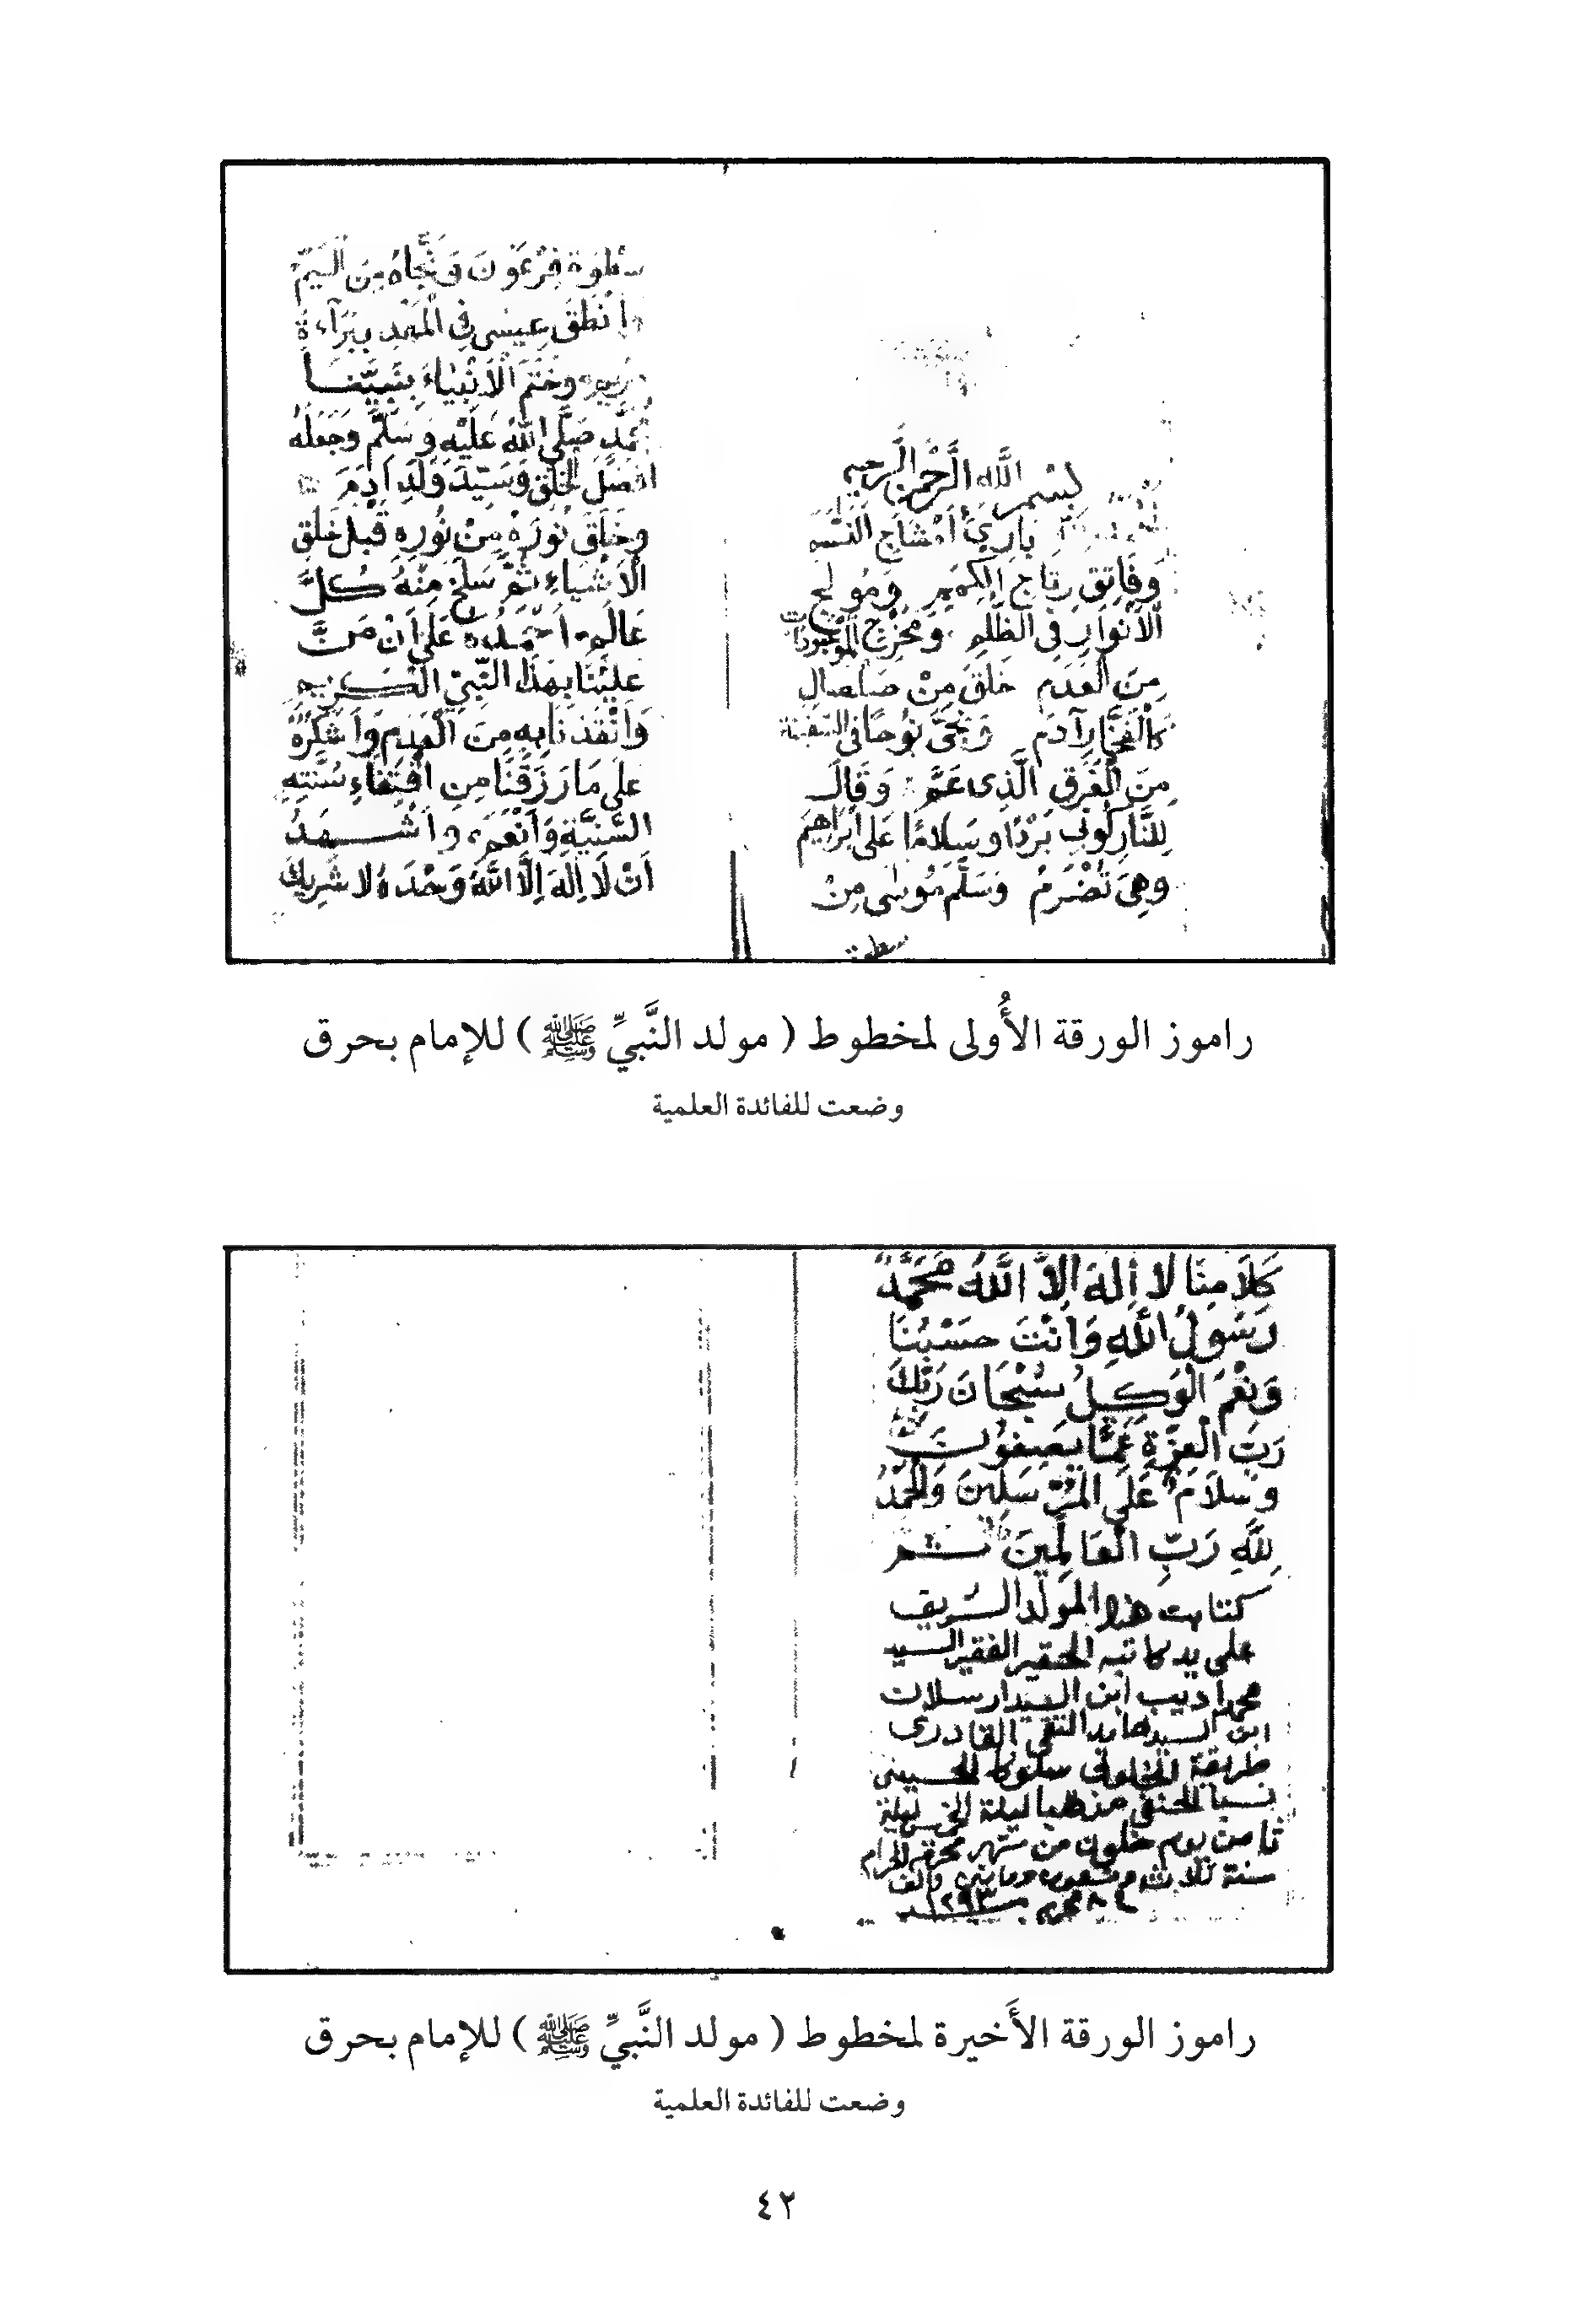 بِسْمِ اللَّهِ الرَّحْمٰنِ الرَّحِيمِ
بَارِئِ أَمْشَاجِ النَّسَمِ
وَفَاتِقِ رِتَاجِ الْكِمَمِ وَمُولِجِ
الْأَنْوَارِ فِي الظُّلَمِ وَمُخْرِجِ الْمَوْجُودَاتِ
مِنَ الْعَدَمِ خَلَقَ مِنْ صَلْصَالٍ
كَالْفَخَّارِ آدَمَ وَنَجَّى نُوحًا فِي السَّفِينَةِ
مِنَ الْغَرَقِ الَّذِي عَمَّ وَقَالَ
لِلنَّارِ كُونِي بَرْدًا وَسَلَامًا عَلَى إِبْرَاهِيمَ
وَهِيَ تُضْرَمُ وَسَلَّمَ مُوسَى مِنْ
سطوة
سَطْوَةِ فِرْعَوْنَ وَنَجَّاهُ مِنَ الْيَمِّ
وَأَنْطَقَ عِيسَى فِي الْمَهْدِ بِبَرَآءَةِ
مريم وَخَتَمَ الْأَنْبِيَاءَ بِنَبِيِّنَا
مُحَمَّدٍ صَلَّى اللَّهُ عَلَيْهِ وَسَلَّمَ وَجَعَلَهُ
أَفْضَلَ الْخَلْقِ وَسَيِّدَ وَلَدِ آدَمَ
وَخَلَقَ نُورَهُ مِنْ نُورِهِ قَبْلَ خَلْقِ
الْأَشْيَاءِ ثُمَّ سَلَخَ مِنْهُ كُلَّ
عَالَمٍ أَحْمَدُهُ عَلَى أَنْ مَنَّ
عَلَيْنَا بِهَذَا النَّبِيِّ الْكَرِيمِ
وَأَنْقَذَنَا بِهِ مِنَ الْعَدَمِ وَأَشْكُرُهُ
عَلَى مَا رَزَقَنَا مِنِ اقْتِفَاءِ سُنَّتِهِ
السَّنِيَّةِ وَأَنْعَمَ وَأَشْهَدُ
أَنْ لَا إِلَهَ إِلَّا اللَّهُ وَحْدَهُ لَا شَرِيكَ
راموز الورقة الأُولى لمخطوط ( مولد النَّبيِّ ﷺ ) للإمام بحرق
وضعت للفائدة العلمية
كَلَامِنَا لَا إِلَهَ إِلَّا اللَّهُ مُحَمَّدٌ
رَسُولُ اللَّهِ وَأَنْتَ حَسْبُنَا
وَنِعْمَ الْوَكِيلُ سُبْحَانَ رَبِّكَ
رَبِّ الْعِزَّةِ عَمَّا يَصِفُونَ
وَسَلَامٌ عَلَى الْمُرْسَلِينَ وَالْحَمْدُ
لِلَّهِ رَبِّ الْعَالَمِينَ تم
كتابت هذا المولد الشريف
على يد كاتبه الحقير الفقير السيد
محمد أديب ابن السيد ارسلان
ابن السيد حامد التقي القادري
طريقة الخلوتي سلوكا الحسيني
نسبا الحنفي مذهبا ليلة
ثامن يوم خلون من شهر محرم الحرام
سنة ثلاث وتسعون ومايتين والف
٨ محرم سنة ١٢٩٣
راموز الورقة الأَخيرة لمخطوط ( مولد النَّبيِّ ﷺ ) للإمام بحرق
وضعت للفائدة العلمية
٤٢